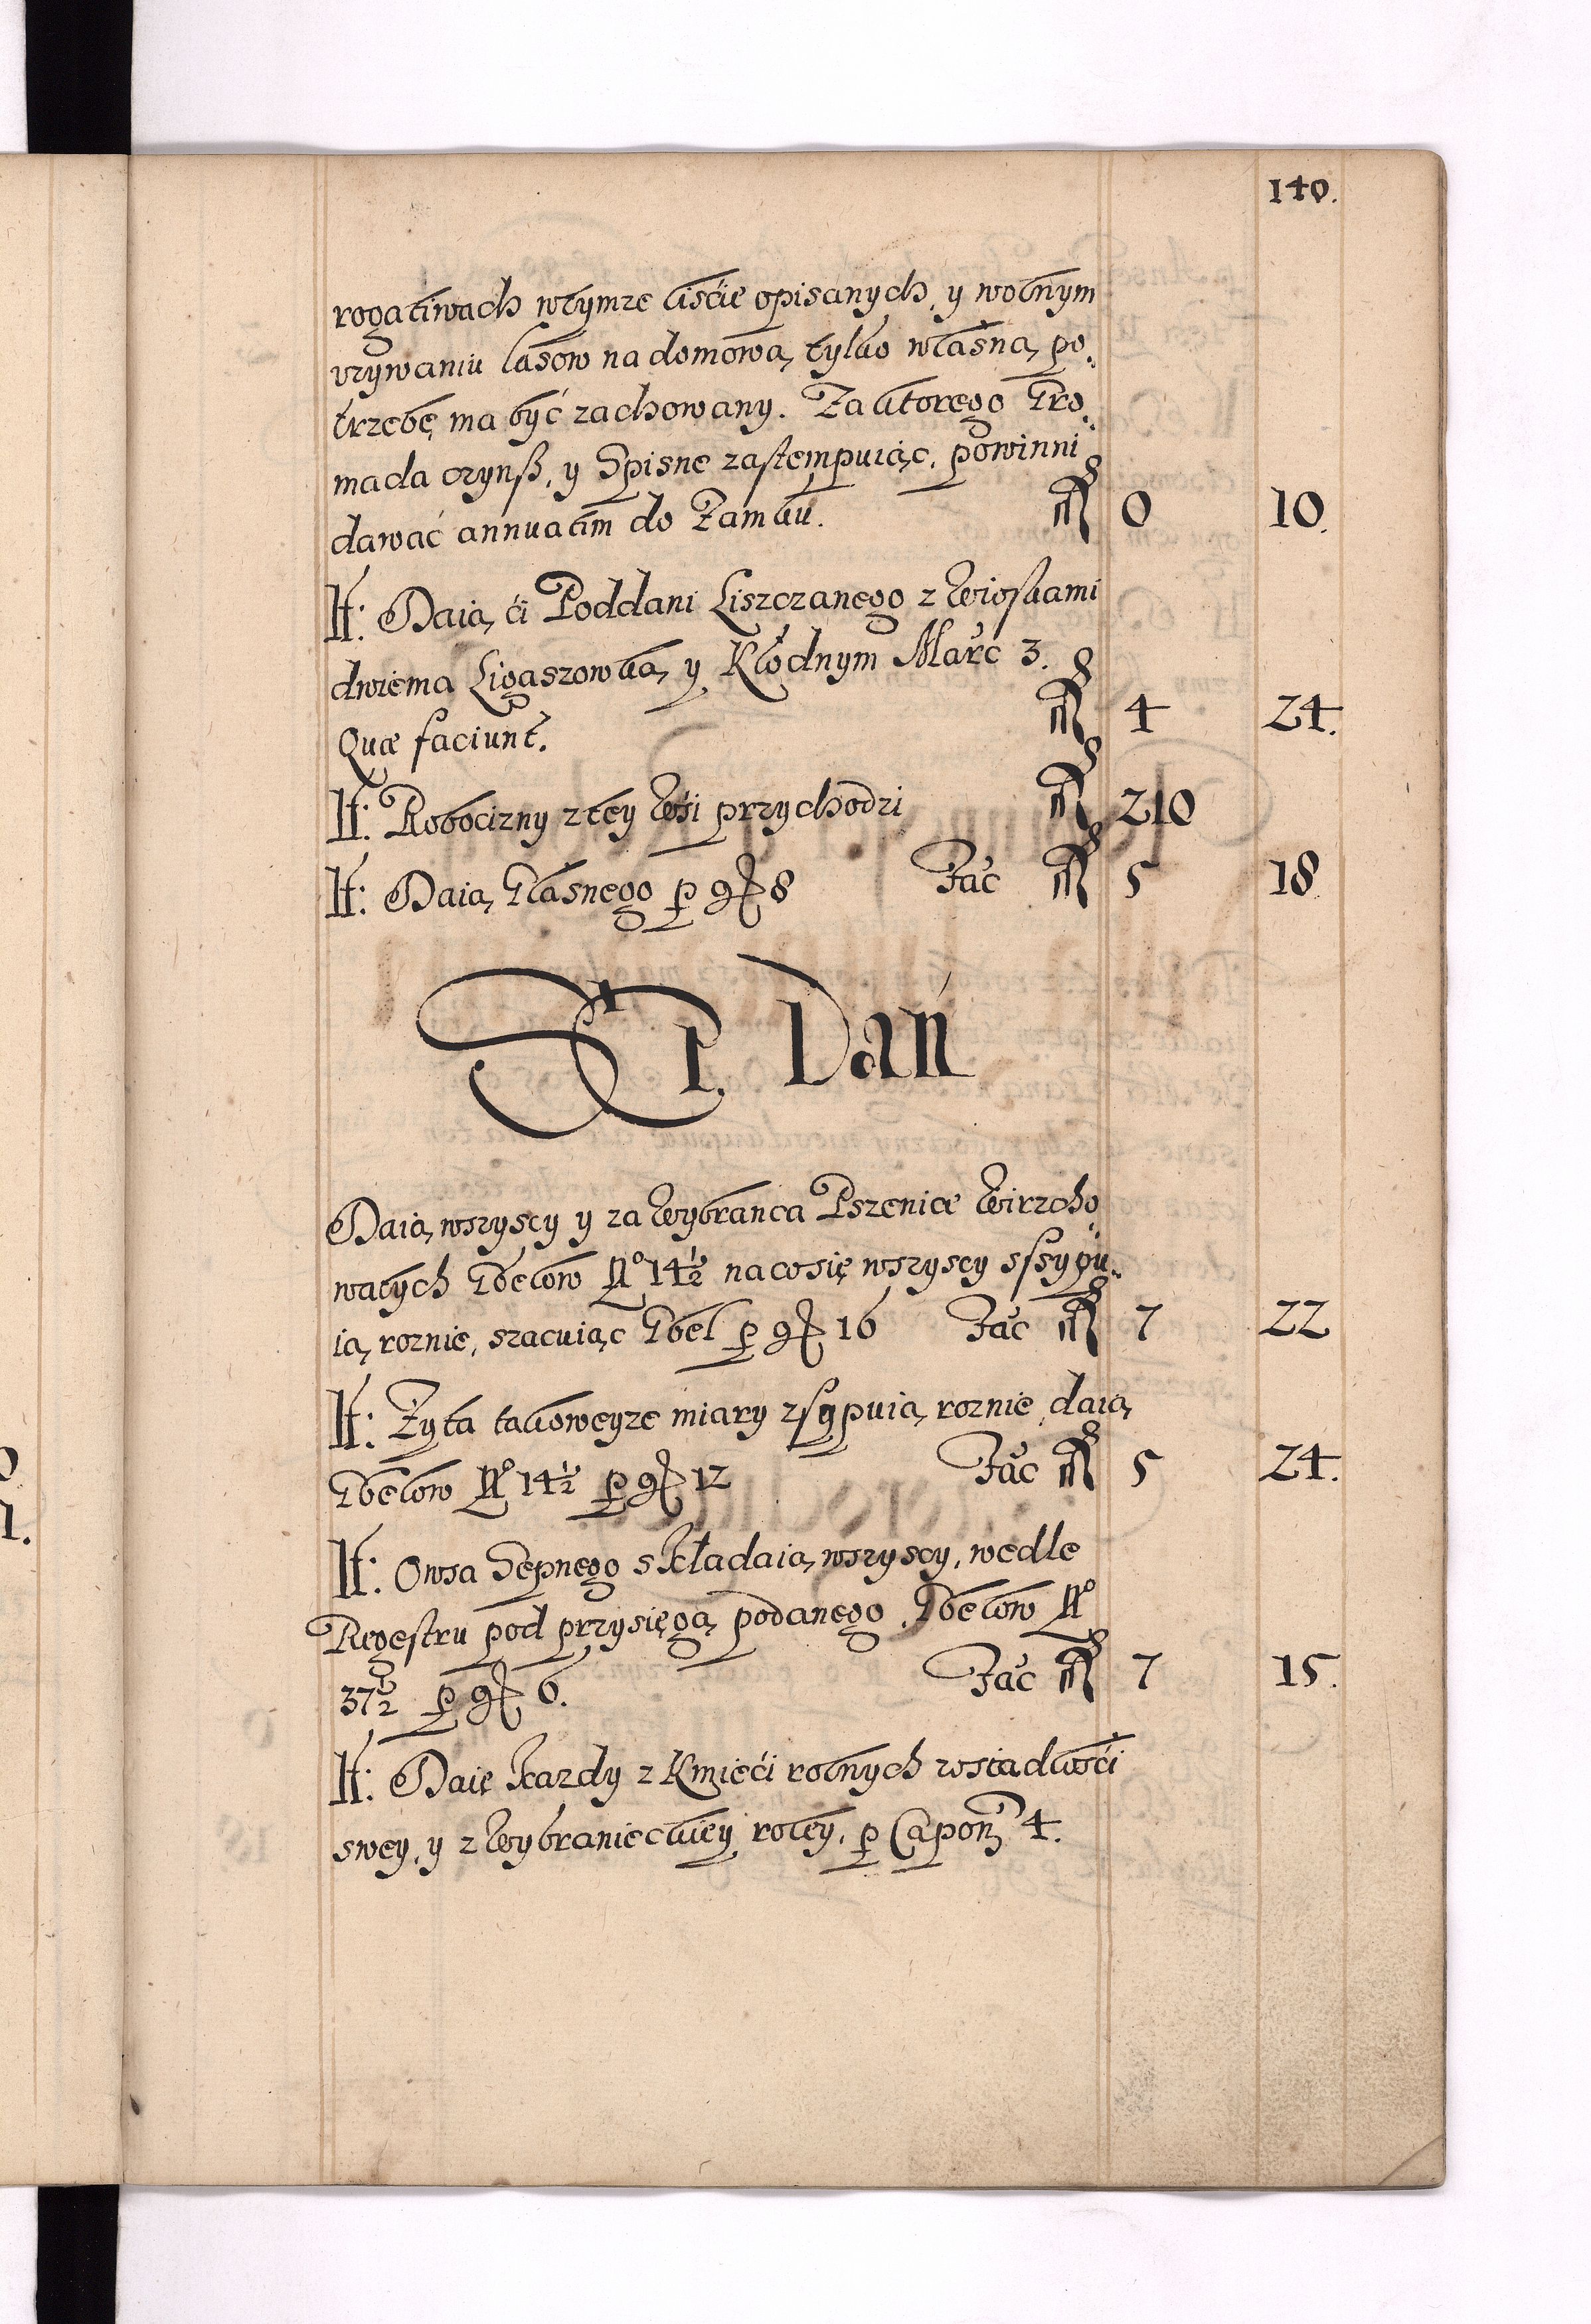 140.
rogatiwach wtymze liście opisanych, y wolnym
vzywaniu lasow na domową tylko własną po,,
trzebę ma być zachowany. Za ktorego Gro,,
mada czynß, y Spisne zastempuiąc, powinni
dawać annuatim do Zamku. fl 0 10.
It: Daią ći Poddani Liszczanego z Wioskami
dwiema Ligaszowką y Kłodnym Marc 3.
Quæ faciunt. fl 4 24.
It: Robocizny z tey Wśi przychodzi fl 210
It: Daią Głasnego p gr 8 Fac fl 5 18
It. Dań
Daią wszyscy y za Wybranca Pszenice Wirzcho,,
watych Gbelow No 14½ nacosię wszyscy sssypu,,
ią roznie, szacuiąc Gbel p gr 16 Fac fl 7 22
It: Zyta takoweyze miary zsypuią roznie, daią
Gbelow No 14½ p gr 12 Fac fl 5 24.
It: Owsa Sepnego składaią wszyscy, wedle
Regestru pod przysięgą podanego Gbelow No
37½ p gr 6. Fac fl 7 15.
It: Daie kazdy z Kmieći rolnych zosiadłośći
swey, y z Wybranieckiey roley, p Capon 4.